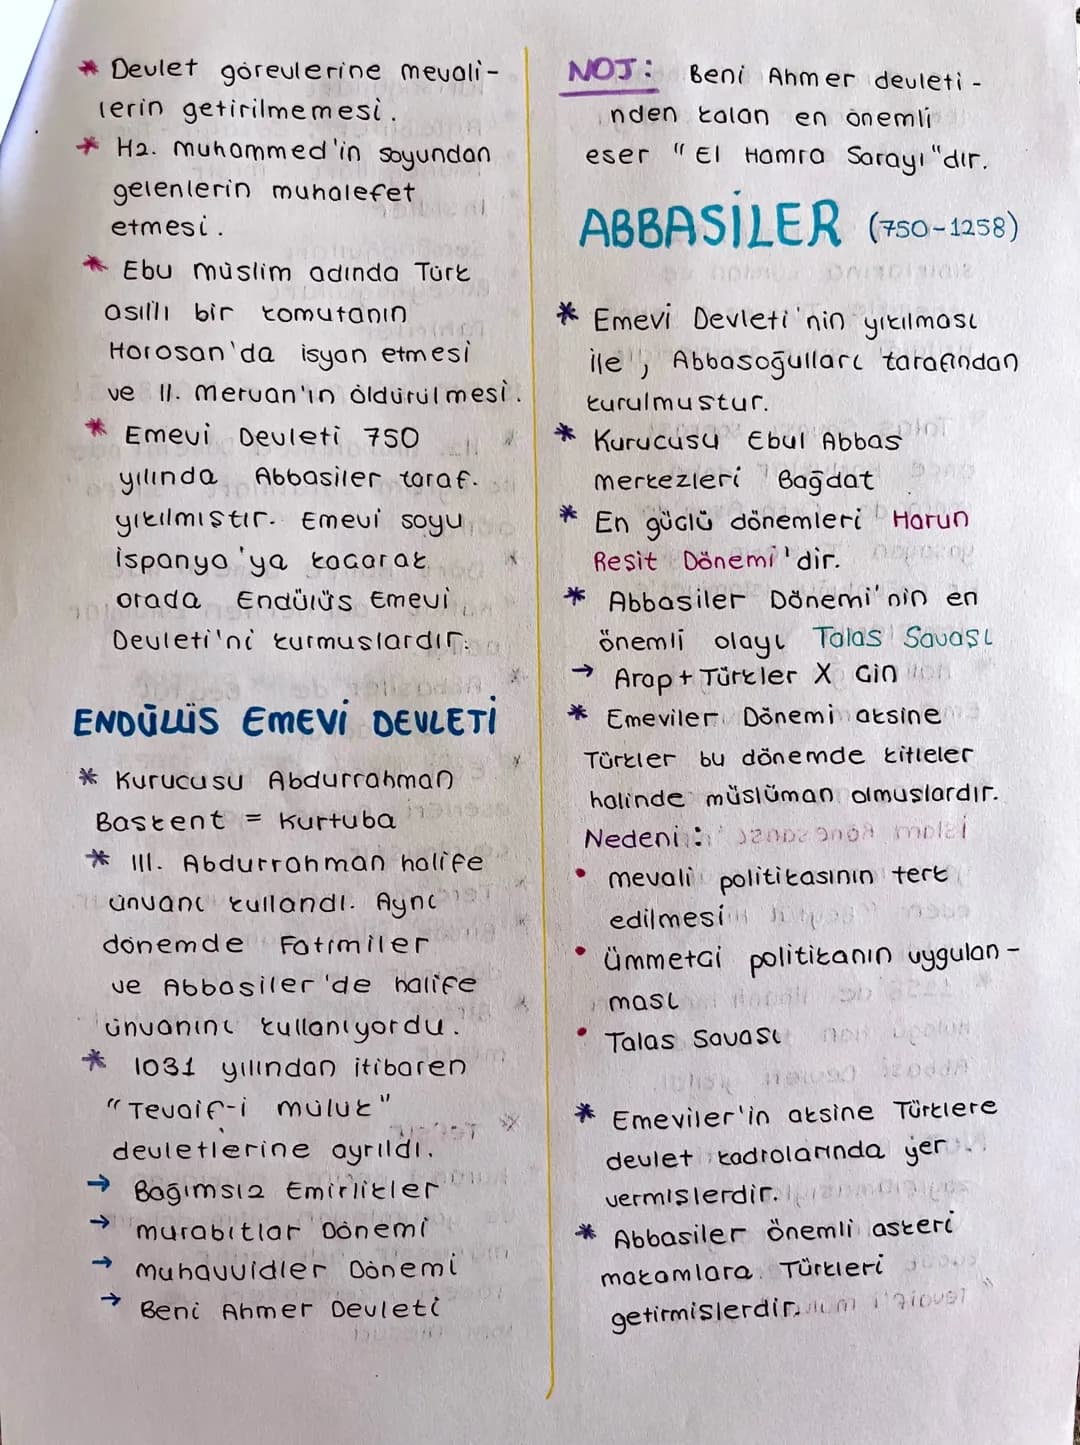 * Devlet görevlerine mevali-
lerin getirilmemesi.
* Hz. muhammed'in soyundan
gelenlerin muhalefet
etmesi.
* Ebu müslim adında Türk
asıllı bir komutanın
Horosan'da isyan etmesi
ve II. Mervan'ın öldürülmesi.
* Emevi Devleti 750
yılında Abbasiler taraf.
yıkılmıştır. Emevi soyu
İspanya'ya kaçarak
orada Endülüs Emevi
Devleti'ni kurmuslardır.
ENDÜLÜS EMEVİ DEVLETİ
* Kurucusu Abdurrahman
Baskent = Kurtuba
* III. Abdurrahman halife
ünvanı kullandı. Aynı
dönemde Fatimiler
ve Abbasiler'de halife
ünvanını kullanıyordu.
* 1031 yılından itibaren
"Tevaif-i müluk"
devletlerine ayrıldı.
→ Bağımsız Emirlikler
→ murabıtlar Dönemi
→ muhavvidler Dönemi
→ Beni Ahmer Devleti
NOT: Beni Ahmer devleti-
nden kalan en önemli
eser "El Hamra Sarayı"dır.
ABBASİLER (750-1258)
* Emevi Devleti'nin yıkılması
ile, Abbasoğulları tarafından
kurulmustur.
* Kurucusu Ebul Abbas
merkezleri Bağdat
* En güçlü dönemleri Harun
Resit Dönemi'dir.
* Abbasiler Dönemi'nin en
önemli olayı Talas Savaşı
→ Arap + Türkler X Çin
* Emeviler Dönemi aksine
Türkler bu dönemde kitleler
halinde müslüman olmuslardır.
Nedeni:
• mevali politikasının terk
edilmesi
• Ümmetçi politikanın uygulan-
ması
• Talas Savası
* Emeviler'in aksine Türklere
devlet kadrolarında yer
vermişlerdir.
* Abbasiler önemli askeri
makamlara Türkleri
getirmişlerdir.